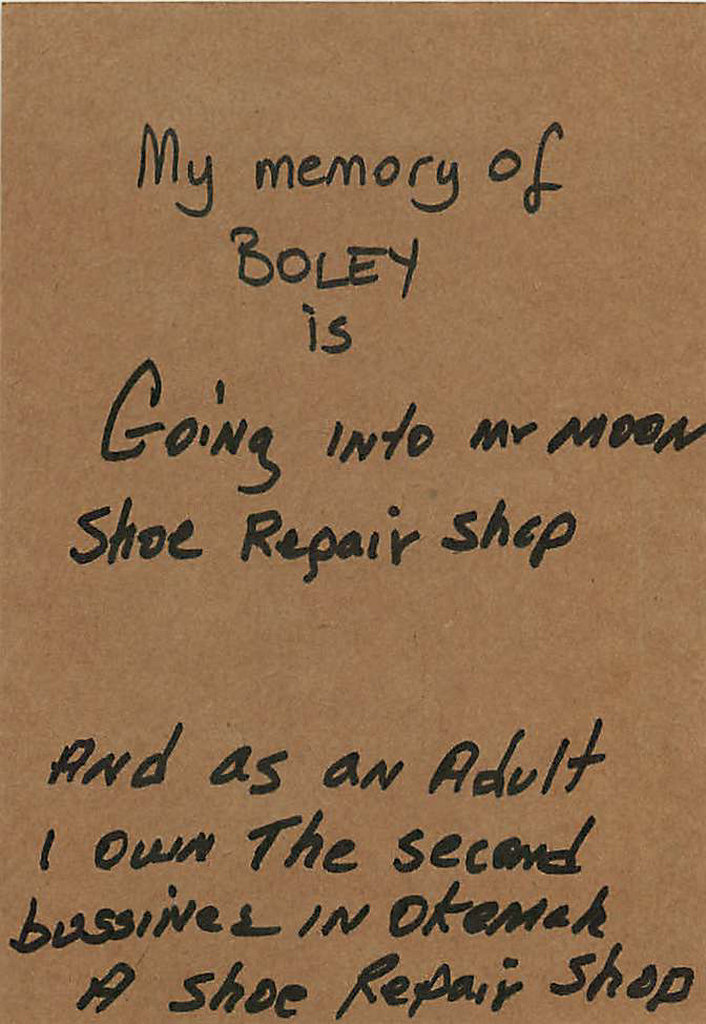 My memory of
BOLEY
is
Going into mr moon
Shoe Repair shop
And as an Adult
I own The second
bussines in Okemah
A shoe Repair shop